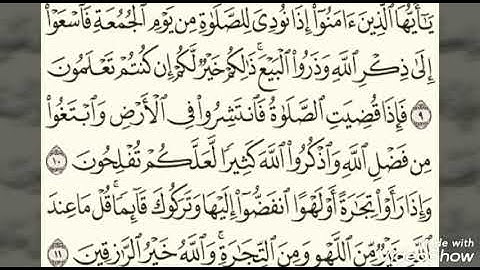 يَـٰٓأَيُّهَا ٱلَّذِينَ ءَامَنُوٓا۟ إِذَا نُودِىَ لِلصَّلَوٰةِ مِن يَوْمِ ٱلْجُمُعَةِ فَٱسْعَوْا۟
إِلَىٰ ذِكْرِ ٱللَّهِ وَذَرُوا۟ ٱلْبَيْعَ ۚ ذَٰلِكُمْ خَيْرٌ لَّكُمْ إِن كُنتُمْ تَعْلَمُونَ
٩ فَإِذَا قُضِيَتِ ٱلصَّلَوٰةُ فَٱنتَشِرُوا۟ فِى ٱلْأَرْضِ وَٱبْتَغُوا۟
مِن فَضْلِ ٱللَّهِ وَٱذْكُرُوا۟ ٱللَّهَ كَثِيرًا لَّعَلَّكُمْ تُفْلِحُونَ ١٠
وَإِذَا رَأَوْا۟ تِجَـٰرَةً أَوْ لَهْوًا ٱنفَضُّوٓا۟ إِلَيْهَا وَتَرَكُوكَ قَآئِمًا ۚ قُلْ مَا عِندَ
ٱللَّهِ خَيْرٌ مِّنَ ٱللَّهْوِ وَمِنَ ٱلتِّجَـٰرَةِ ۚ وَٱللَّهُ خَيْرُ ٱلرَّٰزِقِينَ ١١
Made with